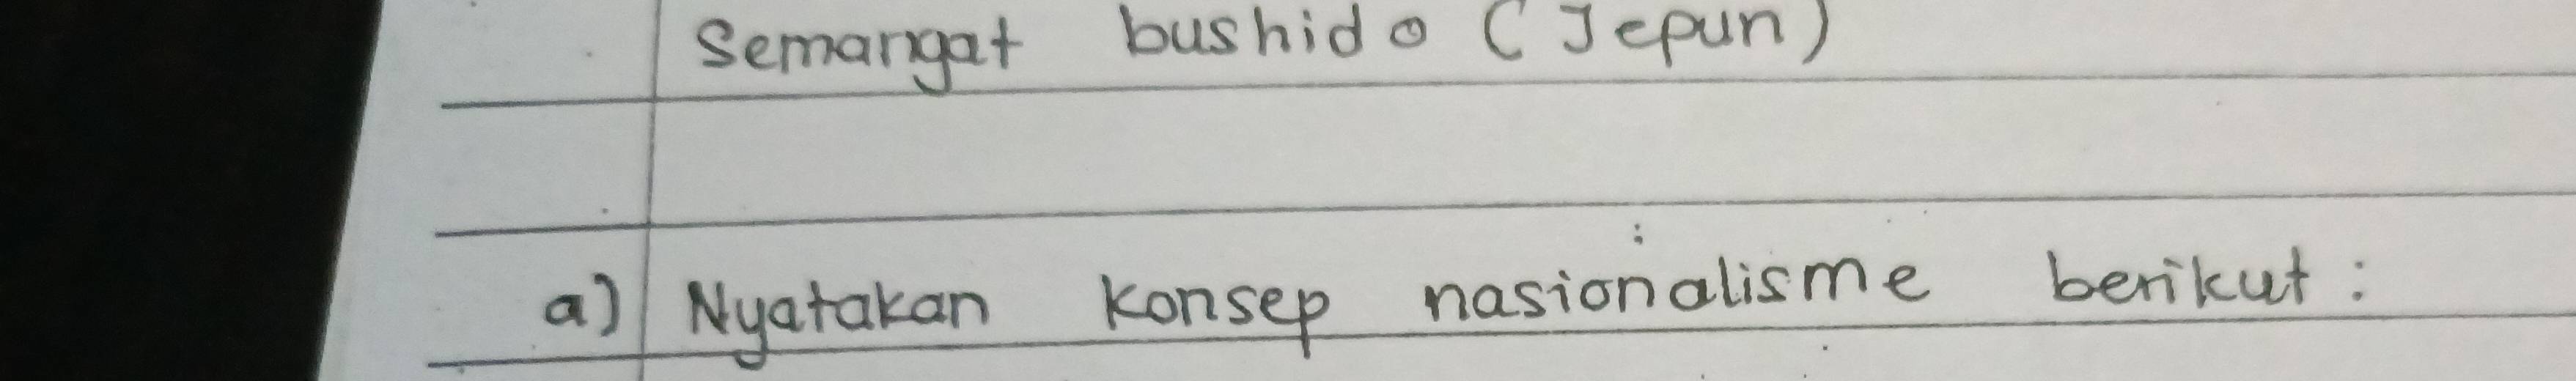 Semangat bushido (Jepun)
a) Nyatakan konsep nasionalisme berikut: